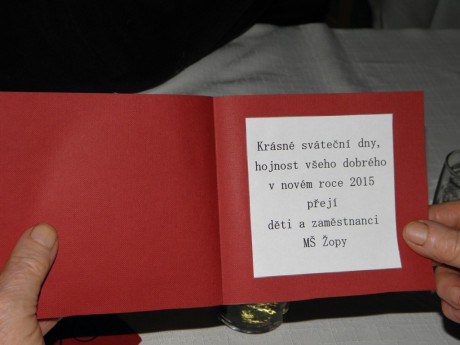 Krásné sváteční dny,
hojnost všeho dobrého
v novém roce 2015
přejí
děti a zaměstnanci
MŠ Žopy